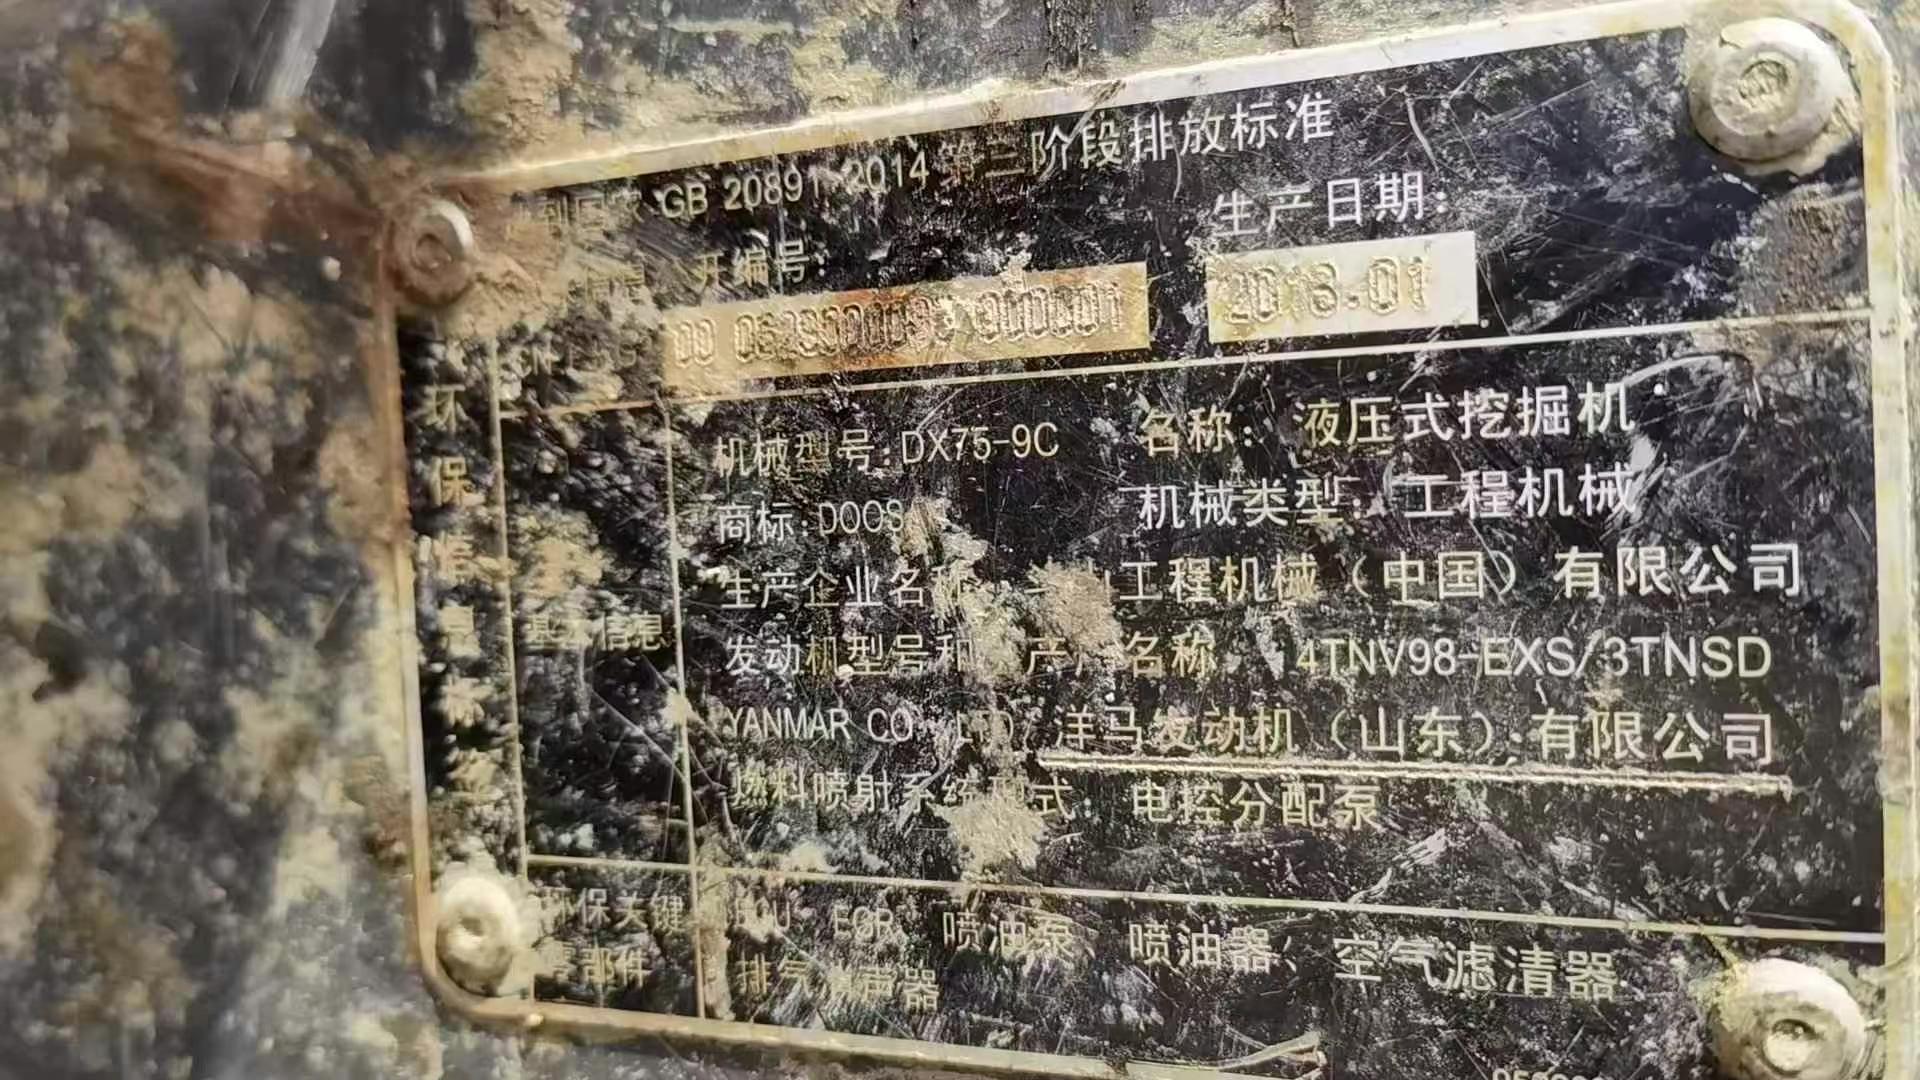 GB 20891-2014 第三阶段排放标准
开编号: 生产日期:
2018.01
环保信息标签
机械型号:DX75-9C 名称: 液压式挖掘机
商标:DOOS 机械类型: 工程机械
生产企业名称 工程机械（中国）有限公司
基本信息
发动机型号和 产 名称 4TNV98-EXS/3TNSD
YANMAR CO LTD/洋马发动机（山东）有限公司
燃料喷射系统型式: 电控分配泵
环保关键 ECU EGR 喷油泵、喷油器、空气滤清器
部件 排气 声器